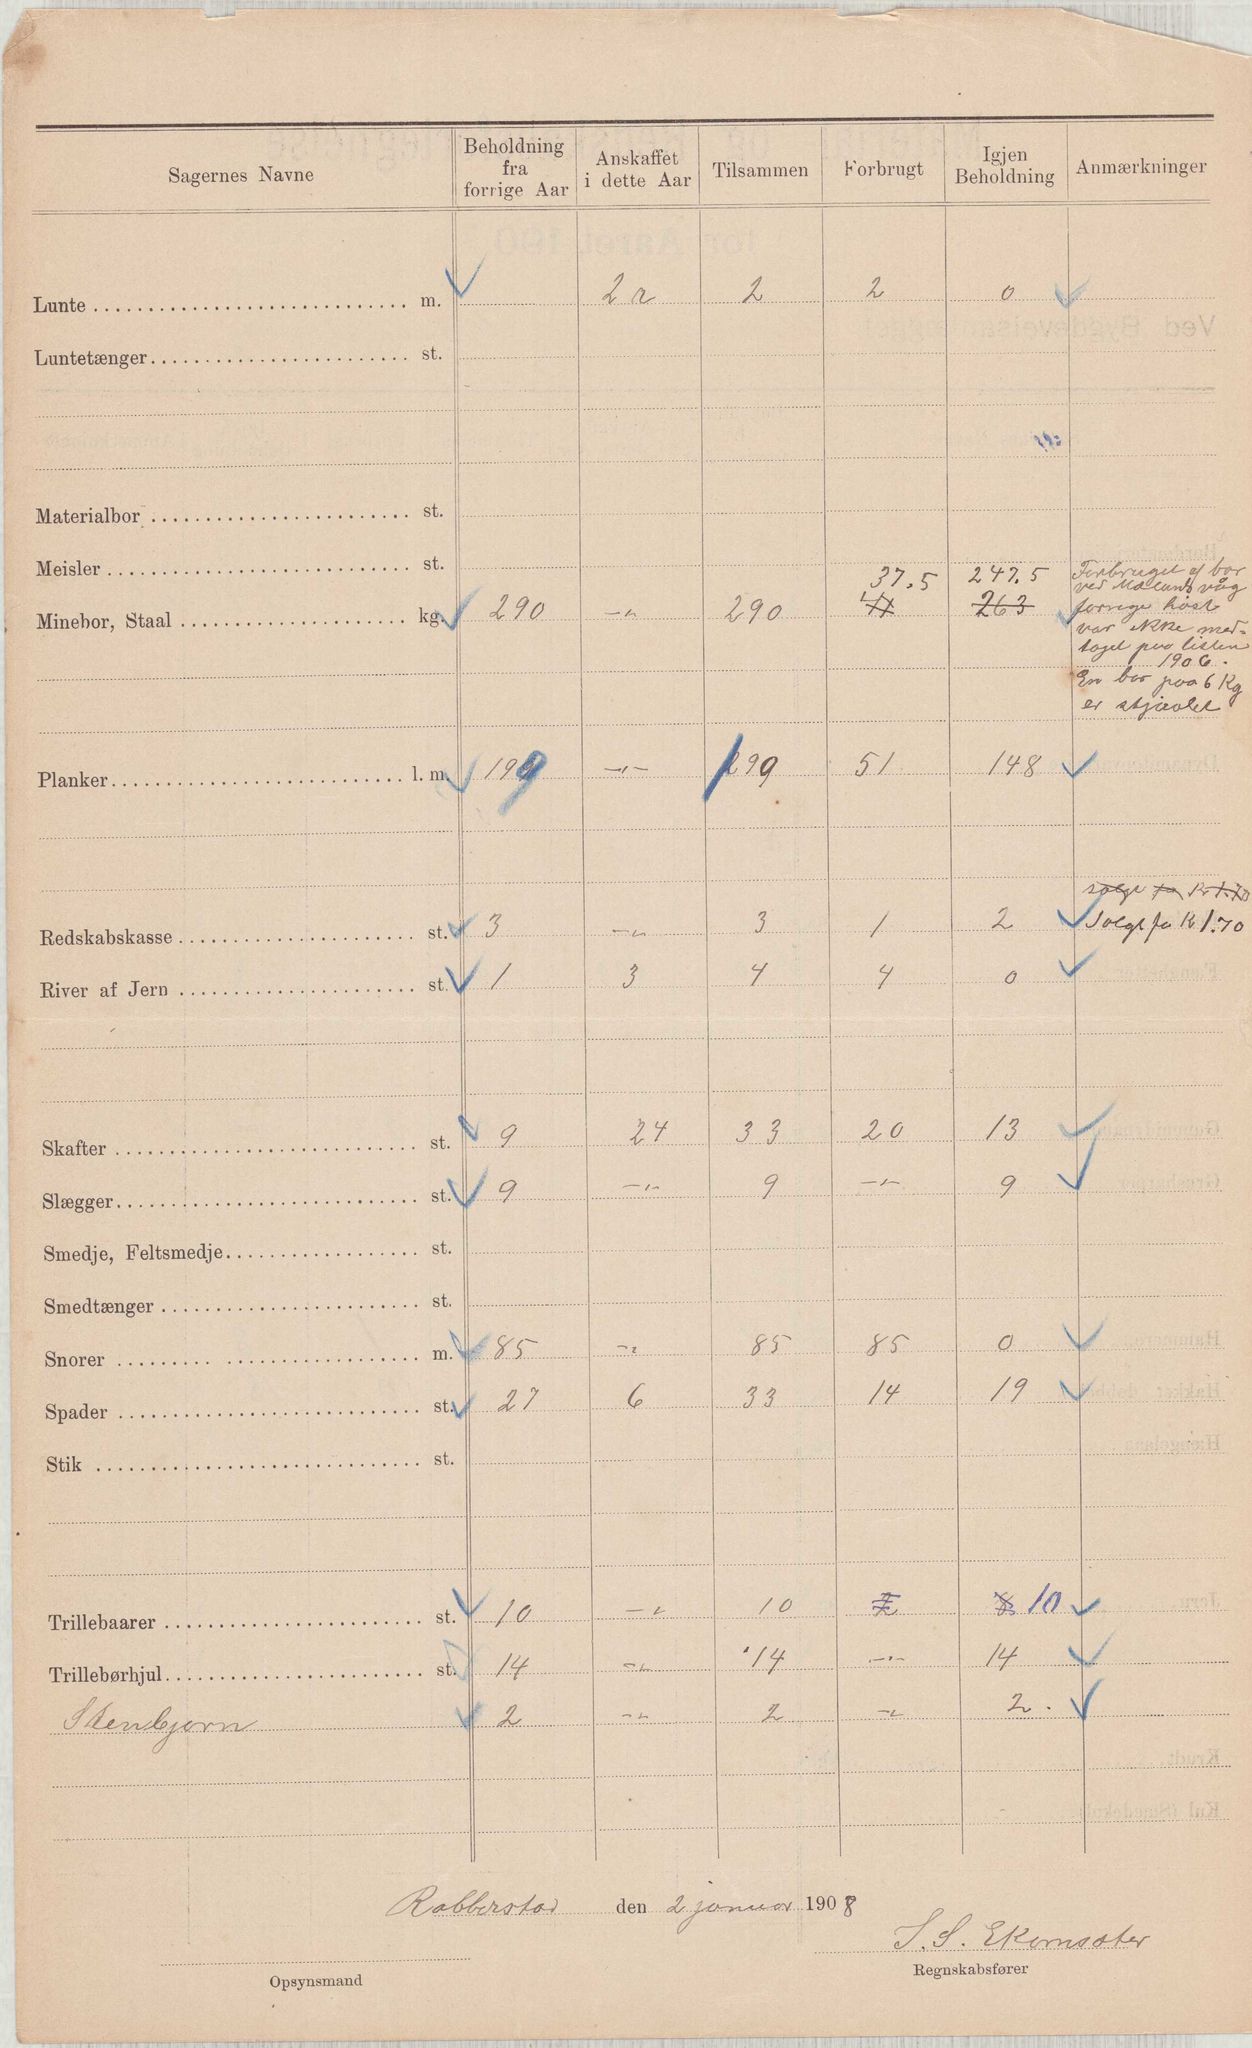 Sagernes Navne | Beholdning fra forrige Aar | Anskaffet i dette Aar | Tilsammen | Forbrugt | Igjen Beholdning | Anmærkninger
Lunte m. 2 r 2 2 0
Luntetænger st.
Materialbor st.
Meisler st.
37.5 247.5
Minebor, Staal kg. 290 -"- 290 263
Forbruget af bor
ved Mælands våg
forrige høst
var ikke med-
taget paa listen
1906.
En bor paa 6 Kg
er stjaalet
Planker l. m. 199 -"- 299 51 148
solgt for Kr 1.70
Redskabskasse st. 3 -"- 3 1 2 Solgt for Kr 1.70
River af Jern st. 1 3 4 4 0
Skafter st. 9 24 33 20 13
Slægger st. 9 -"- 9 -"- 9
Smedje, Feltsmedje st.
Smedtænger st.
Snorer m. 85 -"- 85 85 0
Spader st. 27 6 33 14 19
Stik st.
Trillebaarer st. 10 -"- 10 2 8 10
Trillebørhjul st. 14 -"- 14 -"- 14
Stenbjørn 2 -"- 2 -"- 2.
Rabberstad den 2 januar 1908
S. S. Ekornsæter
Opsynsmand
Regnskabsfører